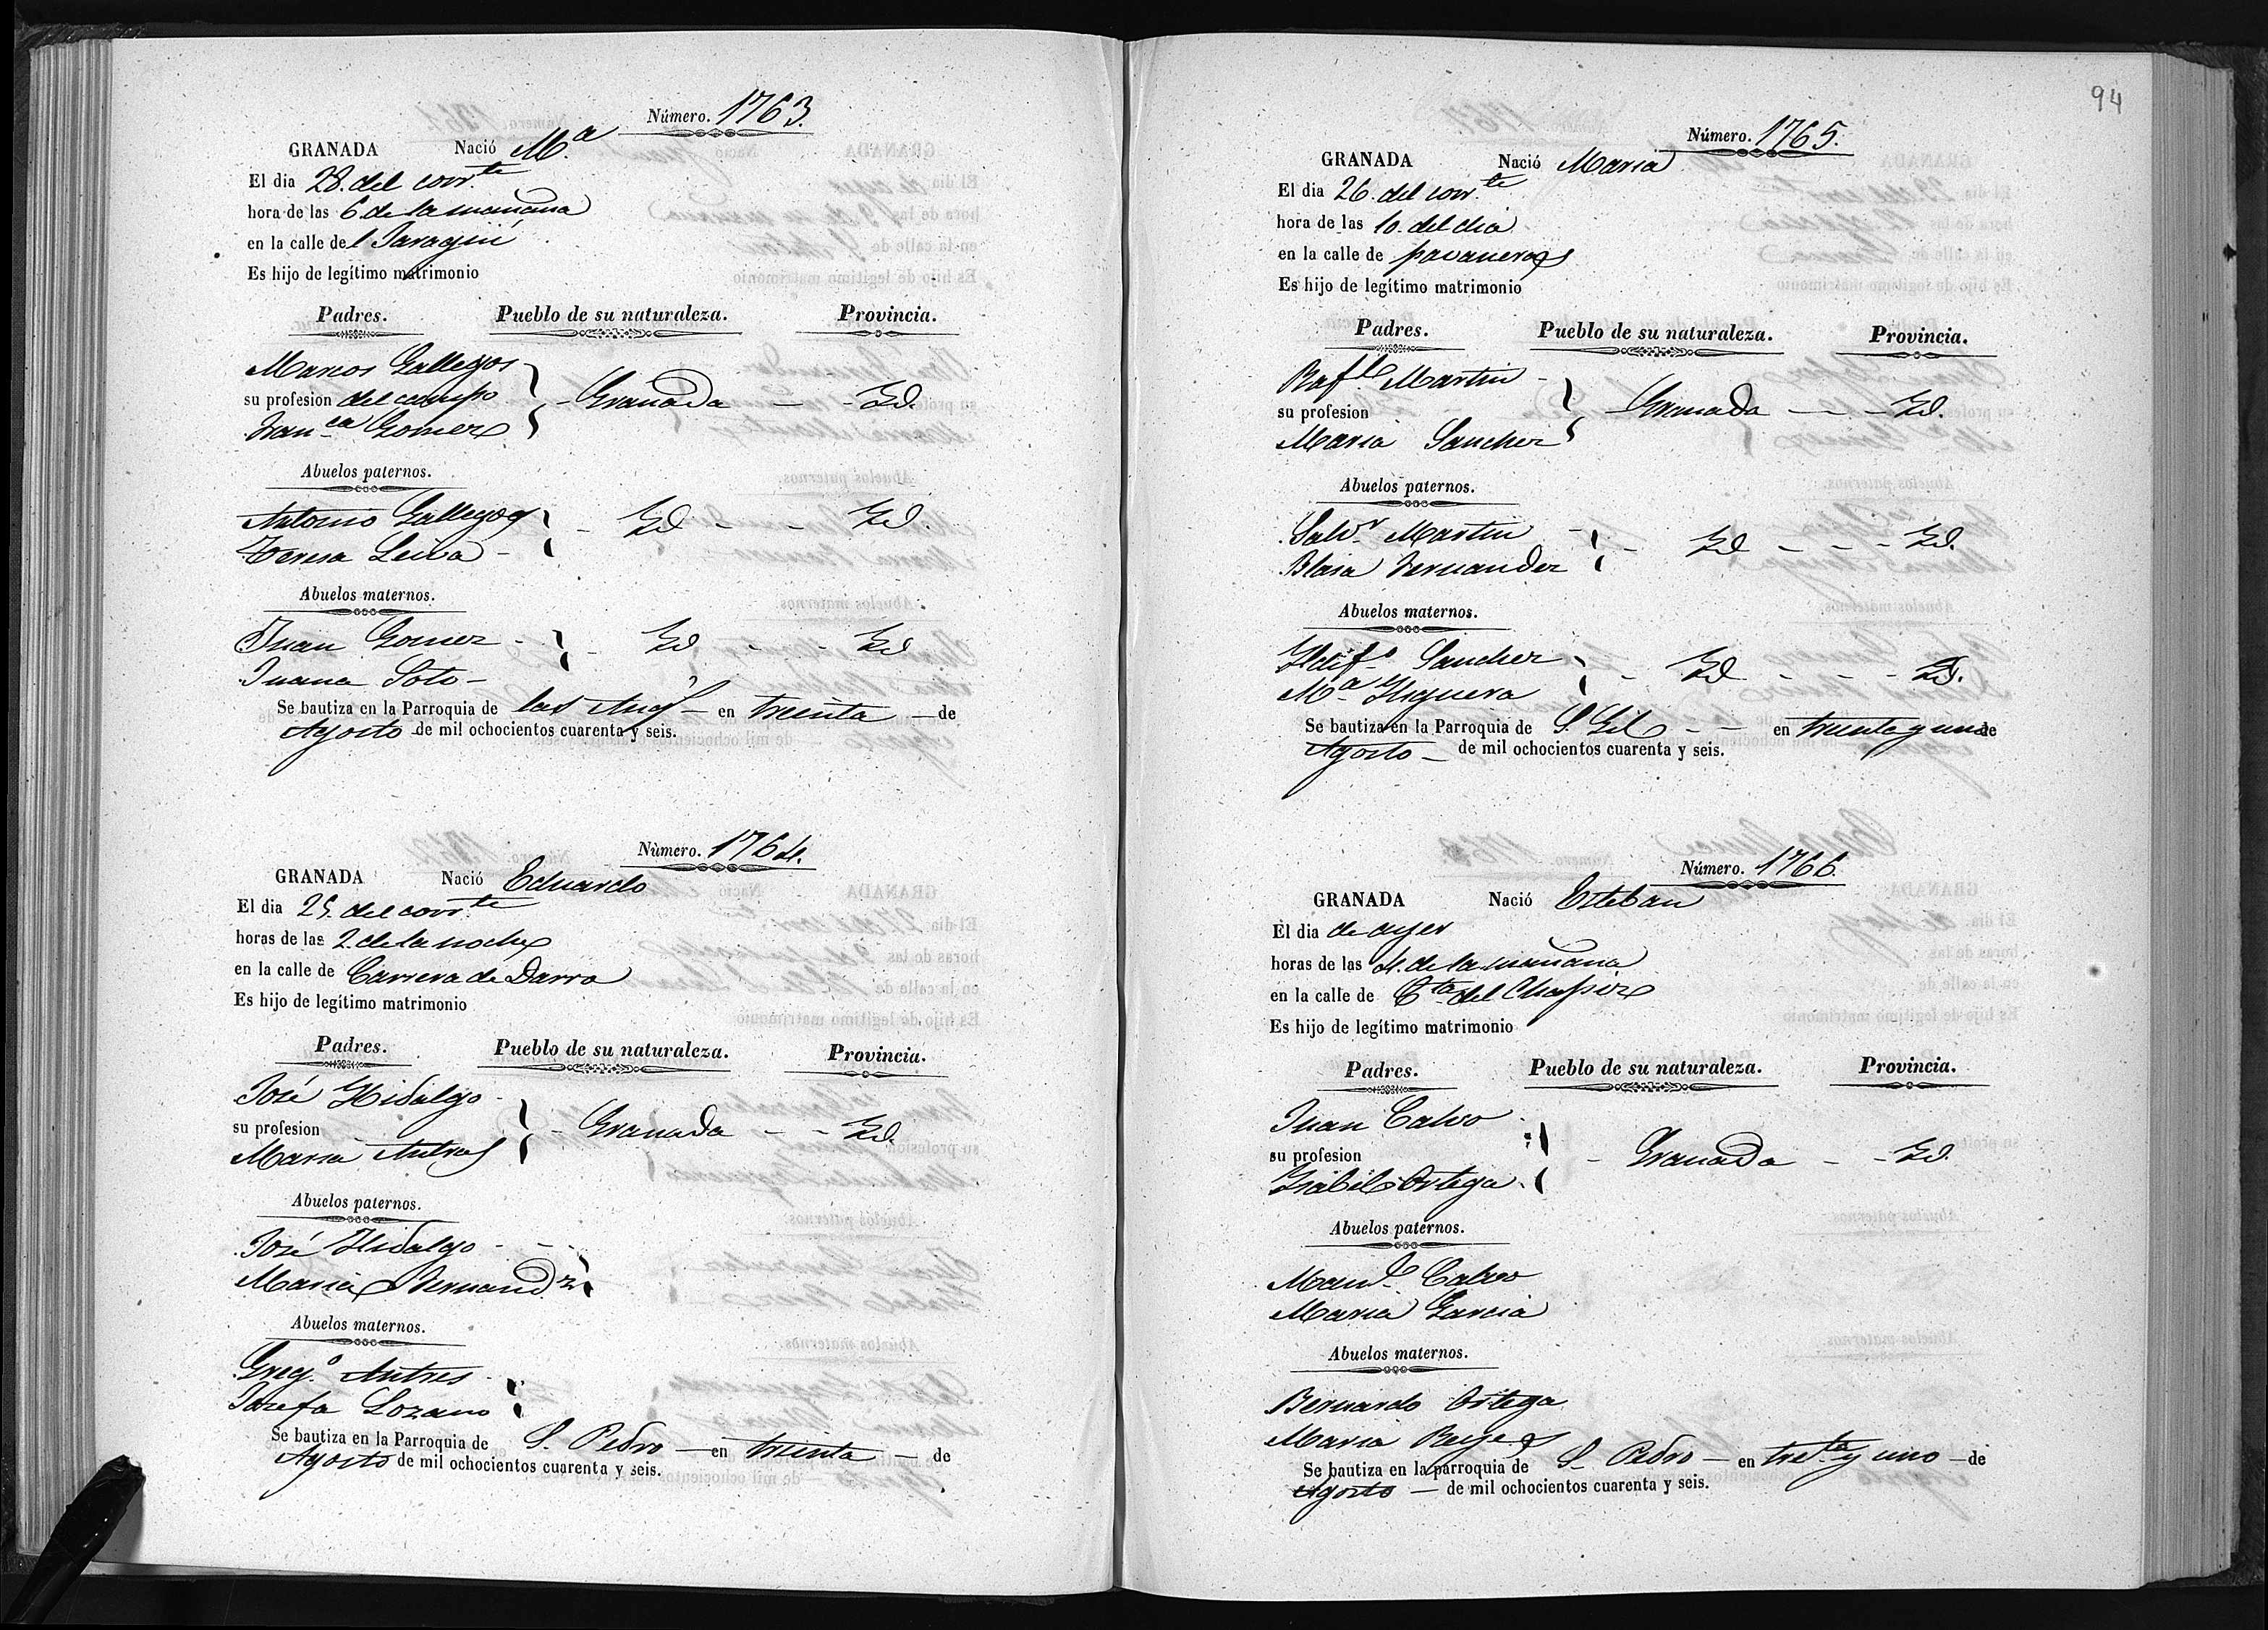 Número. 1763.
GRANADA Nació M.ª
El dia 28. del corr.te
hora de las 6. de la mañana
en la calle del
Es hijo de legítimo matrimonio
Padres. Pueblo de su naturaleza. Provincia.
Marcos Gallegos
su profesion del campo - Granada - - Yd.
Fran.ca Gomez
Abuelos paternos.
Antonio Gallegos - Yd - - Yd.
Teresa Leiva -
Abuelos maternos.
Juan Gomez - - Yd - - Yd
Juana Soto -
Se bautiza en la Parroquia de las Ang.s - en treinta - de
Agosto de mil ochocientos cuarenta y seis.
Nùmero. 1764.
GRANADA Nació Eduardo
El dia 29. del corr.te
horas de las 2. de la noche
en la calle de Carrera de Darro
Es hijo de legítimo matrimonio
Padres. Pueblo de su naturaleza. Provincia.
José Hidalgo -
su profesion - Granada - - Yd.
Maria Antras
Abuelos paternos.
José Hidalgo - -
Maria Fernandz
Abuelos maternos.
Greg.º Antres -
Josefa Lozano
Se bautiza en la Parroquia de S. Pedro - en treinta - de
Agosto de mil ochocientos cuarenta y seis.
94
Número. 1765.
GRANADA Nació Maria
El dia 26. del corr.te
hora de las 10. del dia
en la calle de pavaneros
Es hijo de legítimo matrimonio
Padres. Pueblo de su naturaleza. Provincia.
Raf.l Martin -
su profesion - Granada - - Yd.
Maria Sanchez
Abuelos paternos.
Salv.r Martin - - Yd - - - Yd.
Blasa Fernandez
Abuelos maternos.
Yldif.º Sanchez - Yd - - - Yd.
M.ª Higuera
Se bautiza en la Parroquia de S. Gil - - en treinta y uno de
Agosto - de mil ochocientos cuarenta y seis.
Número. 1766.
GRANADA Nació Esteban
El dia de ayer
horas de las 4. de la mañana
en la calle de C.ta del Chapiz
Es hijo de legítimo matrimonio
Padres. Pueblo de su naturaleza. Provincia.
Juan Calvo
su profesion - Granada - - Yd.
Ysabel Ortega
Abuelos paternos.
Man.l Calvo
Maria Garcia
Abuelos maternos.
Bernardo Ortega
Maria Reyes
Se bautiza en la parroquia de S. Pedro - en tre.ta y uno - de
Agosto - de mil ochocientos cuarenta y seis.